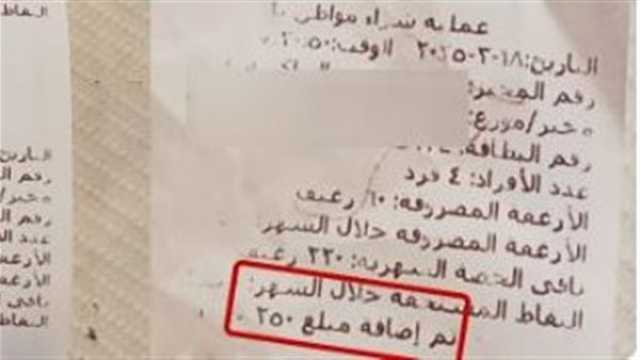 عملية شراء مواطن
التاريخ: ١٨-٠٣-٢٠٢٥ الوقت: ٢٠:٥٠
رقم المخبز:
مخبز/موزع:
رقم البطاقة:
عدد الأفراد: ٤ فرد
الأرغفة المصروفة: ١٠ رغيف
الأرغفة المصروفة خلال الشهر:
باقى الحصة الشهرية: ٢٢٠ رغيف
النقاط المستحقة خلال الشهر:
تم إضافة مبلغ ٢٥٠
النقاط ال
التاريخ
رقم ال
مخبز/
رقم ال
عدد الأ
الأرغفة
الأرغفة
باقى ا
النقاط